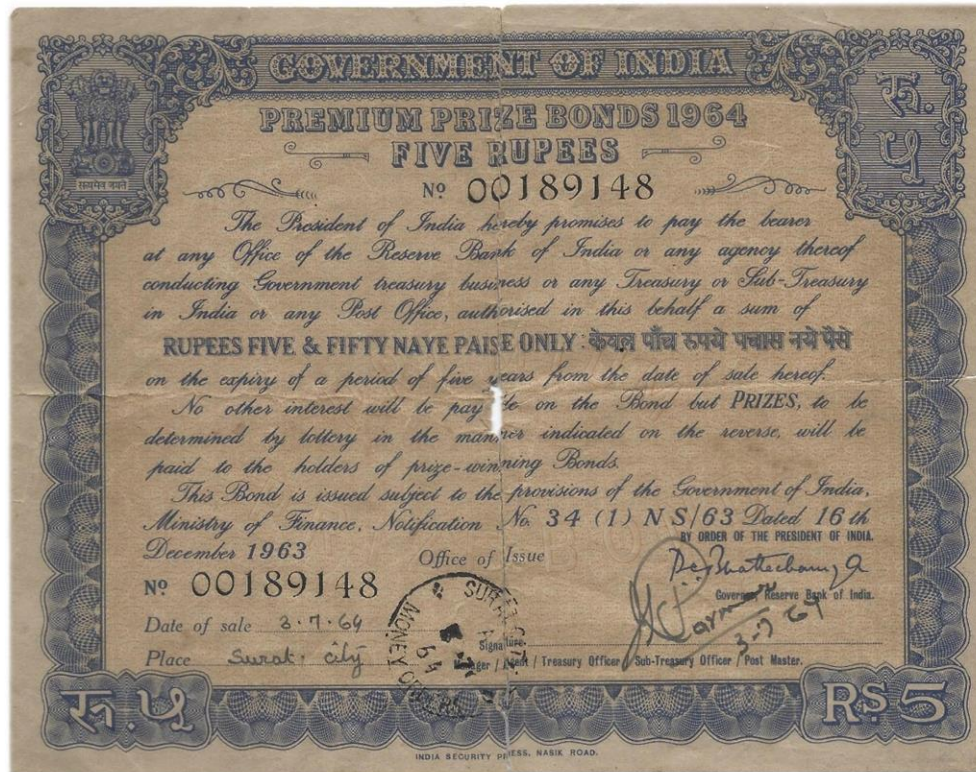 GOVERNMENT OF INDIA
PREMIUM PRIZE BONDS 1964
FIVE RUPEES
सत्यमेव जयते
रु.
५
Nº 00189148
The President of India hereby promises to pay the bearer
at any Office of the Reserve Bank of India or any agency thereof
conducting Government treasury business or any Treasury or Sub-Treasury
in India or any Post Office, authorised in this behalf a sum of
RUPEES FIVE & FIFTY NAYE PAISE ONLY : केवल पाँच रुपये पचास नये पैसे
on the expiry of a period of five years from the date of sale hereof.
No other interest will be pay le on the Bond but PRIZES, to be
determined by lottery in the manner indicated on the reverse, will be
paid to the holders of prize-winning Bonds.
This Bond is issued subject to the provisions of the Government of India,
Ministry of Finance, Notification No. 34 (1) N S/63 Dated 16 th
December 1963
BY ORDER OF THE PRESIDENT OF INDIA.
Office of Issue
Nº 00189148
Governor Reserve Bank of India.
Date of sale 3.7.64
3-7 64
Signature
Place Surat city
Manager / Agent / Treasury Officer / Sub-Treasury Officer / Post Master.
SURAT CITY
MONEY ORDERS
64
रु. ५
RS 5
INDIA SECURITY PRESS, NASIK ROAD.